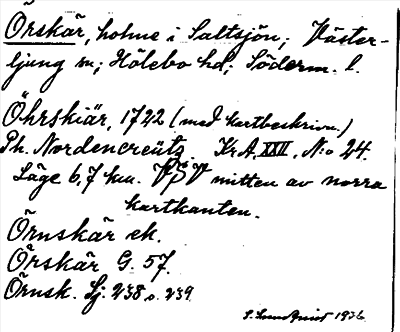 Örskär, holme i Saltsjön; Väster-
ljung sn; Hölebo hd; Söderm. l.
Öhrskiär, 1722 (med kartbeskrivn.)
Ph. Nordencreütz. Kr A, XXII, N:o 24.
Läge 6,7 km. VSV mitten av norra
kartkanten.
Örnskär ek.
Örskär G. 57.
Örnsk. Lj. 238 o. 239.
S. Lundqvist 1936